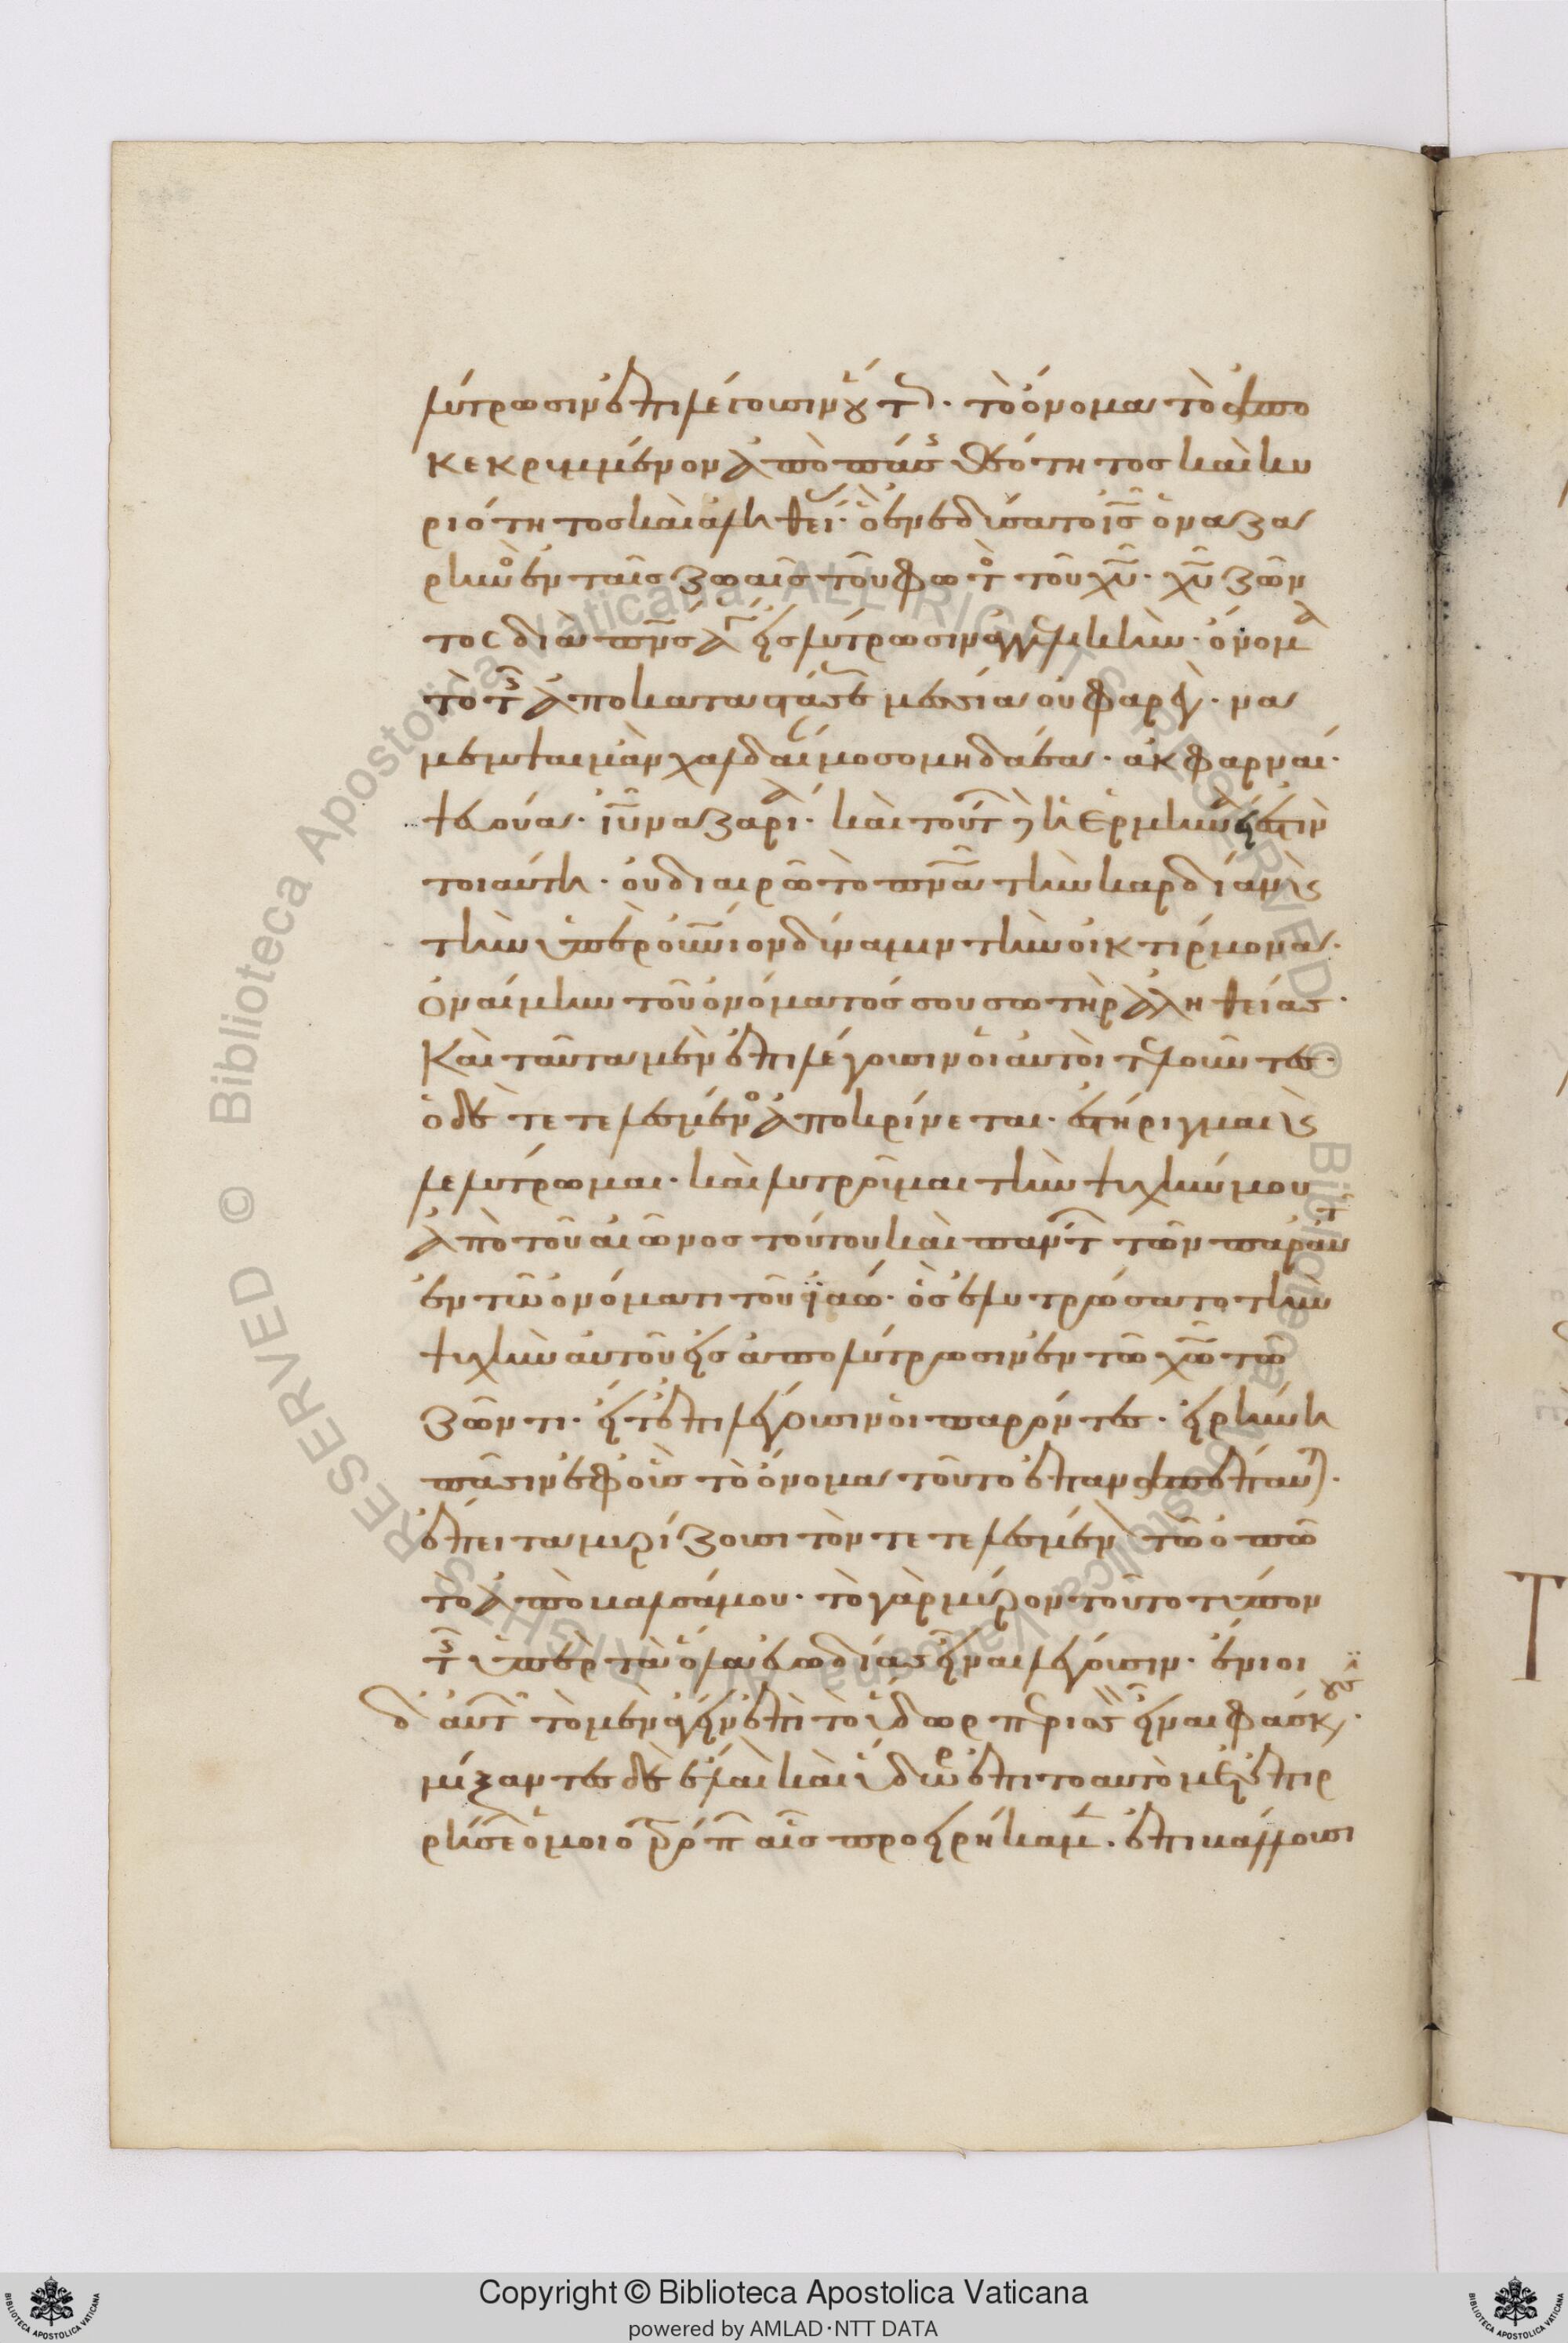 λύτρωσιν ἐπιλέγουσιν οὕτ. τὸ ὄνομα τὸ ἀπο
κεκρυμμένον ἀπὸ πάσ θεότητος καὶ κυ
ριότητος καὶ ἀληθεί. ὃ ἐνεδύσατο ἰς ὁ ναζα
ρηνὸ ἐν ταῖς ζωαῖς τοῦ φωτὸ τοῦ χῦ. χῦ ζῶν
τος διὰ πνς ἁγί εἰς λύτρωσιν ἀγγελικὴν. ὄνομα
τὸ τῆς ἀποκαταστάσε μεσσία οὐφαρέγ. να
μεμψαιμὰν χαλδαίμοσομηδάεα. ἀκφαρναί.
ψεουά. ἰῦ ναζαρί. καὶ τούτ δὲ ἡ ἑρμηνεία ἐστὶν
τοιαύτη. οὐ διαιρῶ τὸ πνα τὴν καρδίαν καὶ
τὴν ὑπερουνιον δύναμιν τὴν οἰκτίρμονα.
ὀναίμην τοῦ ὀνόματός σου σωτὴρ ἀληθείας.
Καὶ ταῦτα μὲν ἐπιλέγουσιν οἱ αὐτοὶ τελοῦντες.
ὁ δὲ τετελεσμένο ἀποκρίνεται. ἐστήριγμαι καὶ
λελύτρωμαι. καὶ λυτροῦμαι τὴν ψυχήν μου
ἀπὸ τοῦ αἰῶνος τούτου καὶ πάντ τῶν παρ αὐτ
ἐν τῶ ὀνόματι τοῦ ϊαώ. ὃς ἐλυτρώσατο τὴν
ψυχὴν αὐτοῦ εἰς ἀπολύτρωσιν ἐν τῶ χῶ τῶ
ζῶντι. εἶτ ἐπιλέγουσιν οἱ παρόντες. εἰρήνη
πᾶσιν ἐφ οὓς τὸ ὄνομα τοῦτο ἐπαναπέπαυται.
ἔπειτα μυρίζουσι τὸν τετελεσμένον τῶ ὀπῶ
τὸ ἀπὸ βαλσάμου. τὸ γὰρ μύρον τοῦτο τύπον
τῆς ὑπὲρ τὰ ὅλα εὐωδίας εἶναι λέγουσιν. ἔνιοι
δ αὐτ τὸ μὲν ἄγειν ἐπὶ τὸ ὕδωρ περισσὸν εἶναι φάσκουσ.
μίξαντες δὲ ἔλαι καὶ ὕδωρ ἐπι το αυτὸ μετ ἐπιρ
ρήσε ὁμοιο τρόπ αἷς προειρήκαμ. ἐπιβάλλουσι